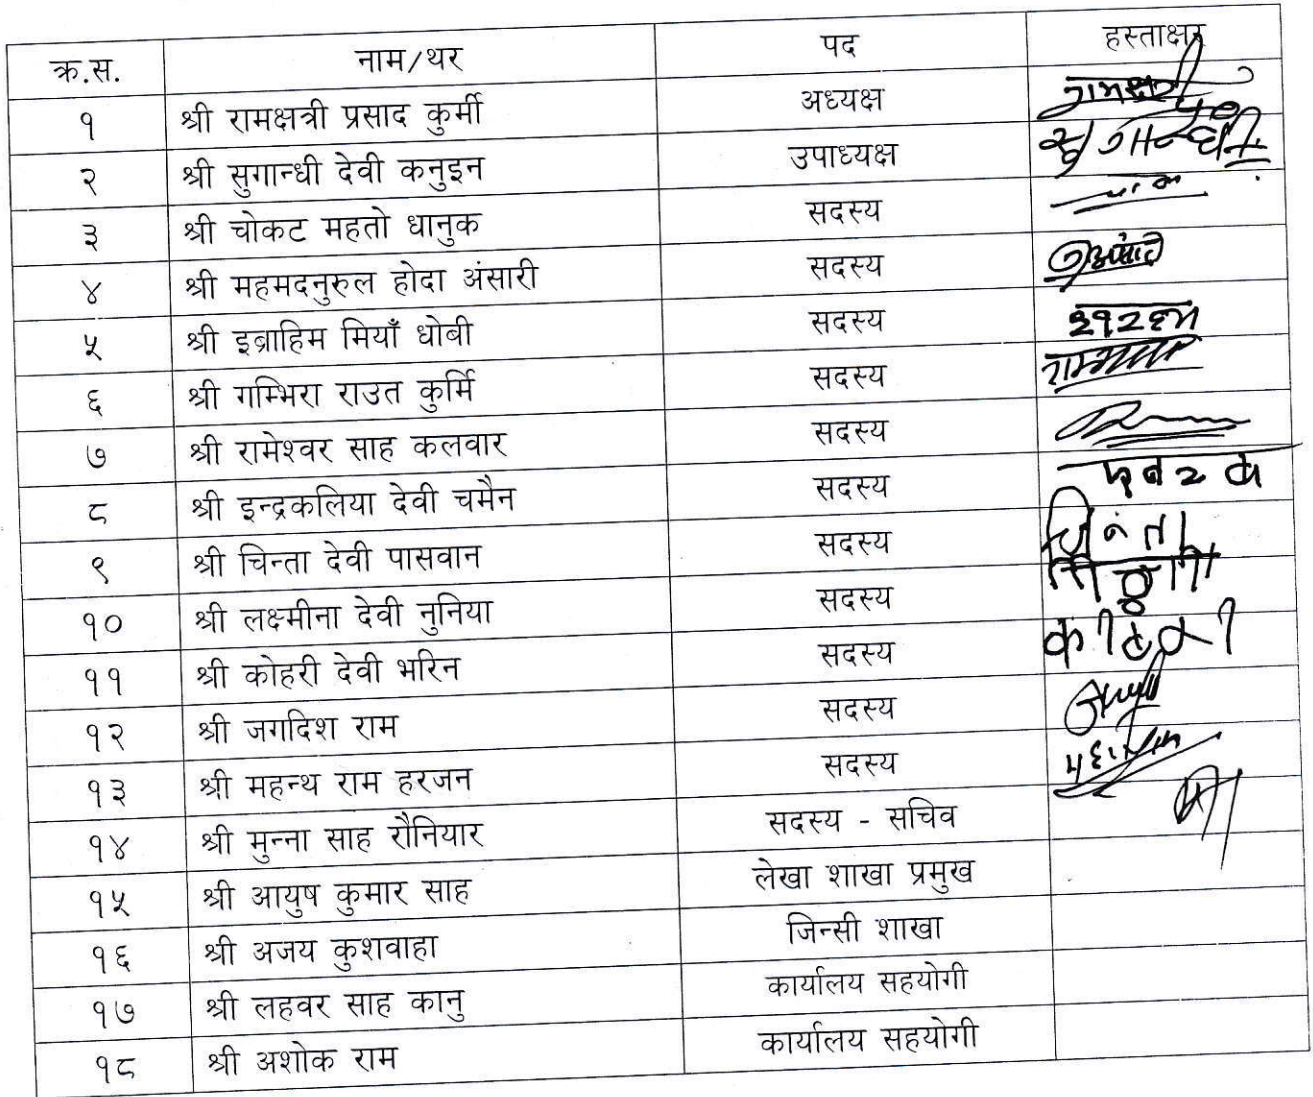 क्र.स. नाम/थर पद हस्ताक्षर
१ श्री रामक्षत्री प्रसाद कुर्मी अध्यक्ष
२ श्री सुगान्धी देवी कनुइन उपाध्यक्ष सुगान्धी
३ श्री चोकट महतो धानुक सदस्य
४ श्री महमदनुरुल होदा अंसारी सदस्य
५ श्री इब्राहिम मियाँ धोबी सदस्य
६ श्री गम्भिरा राउत कुर्मि सदस्य
७ श्री रामेश्वर साह कलवार सदस्य
८ श्री इन्द्रकलिया देवी चमैन सदस्य
९ श्री चिन्ता देवी पासवान सदस्य
१० श्री लक्ष्मीना देवी नुनिया सदस्य
११ श्री कोहरी देवी भरिन सदस्य
१२ श्री जगदिश राम सदस्य
१३ श्री महन्थ राम हरजन सदस्य
१४ श्री मुन्ना साह रौनियार सदस्य - सचिव
१५ श्री आयुष कुमार साह लेखा शाखा प्रमुख
१६ श्री अजय कुशवाहा जिन्सी शाखा
१७ श्री लहवर साह कानु कार्यालय सहयोगी
१८ श्री अशोक राम कार्यालय सहयोगी